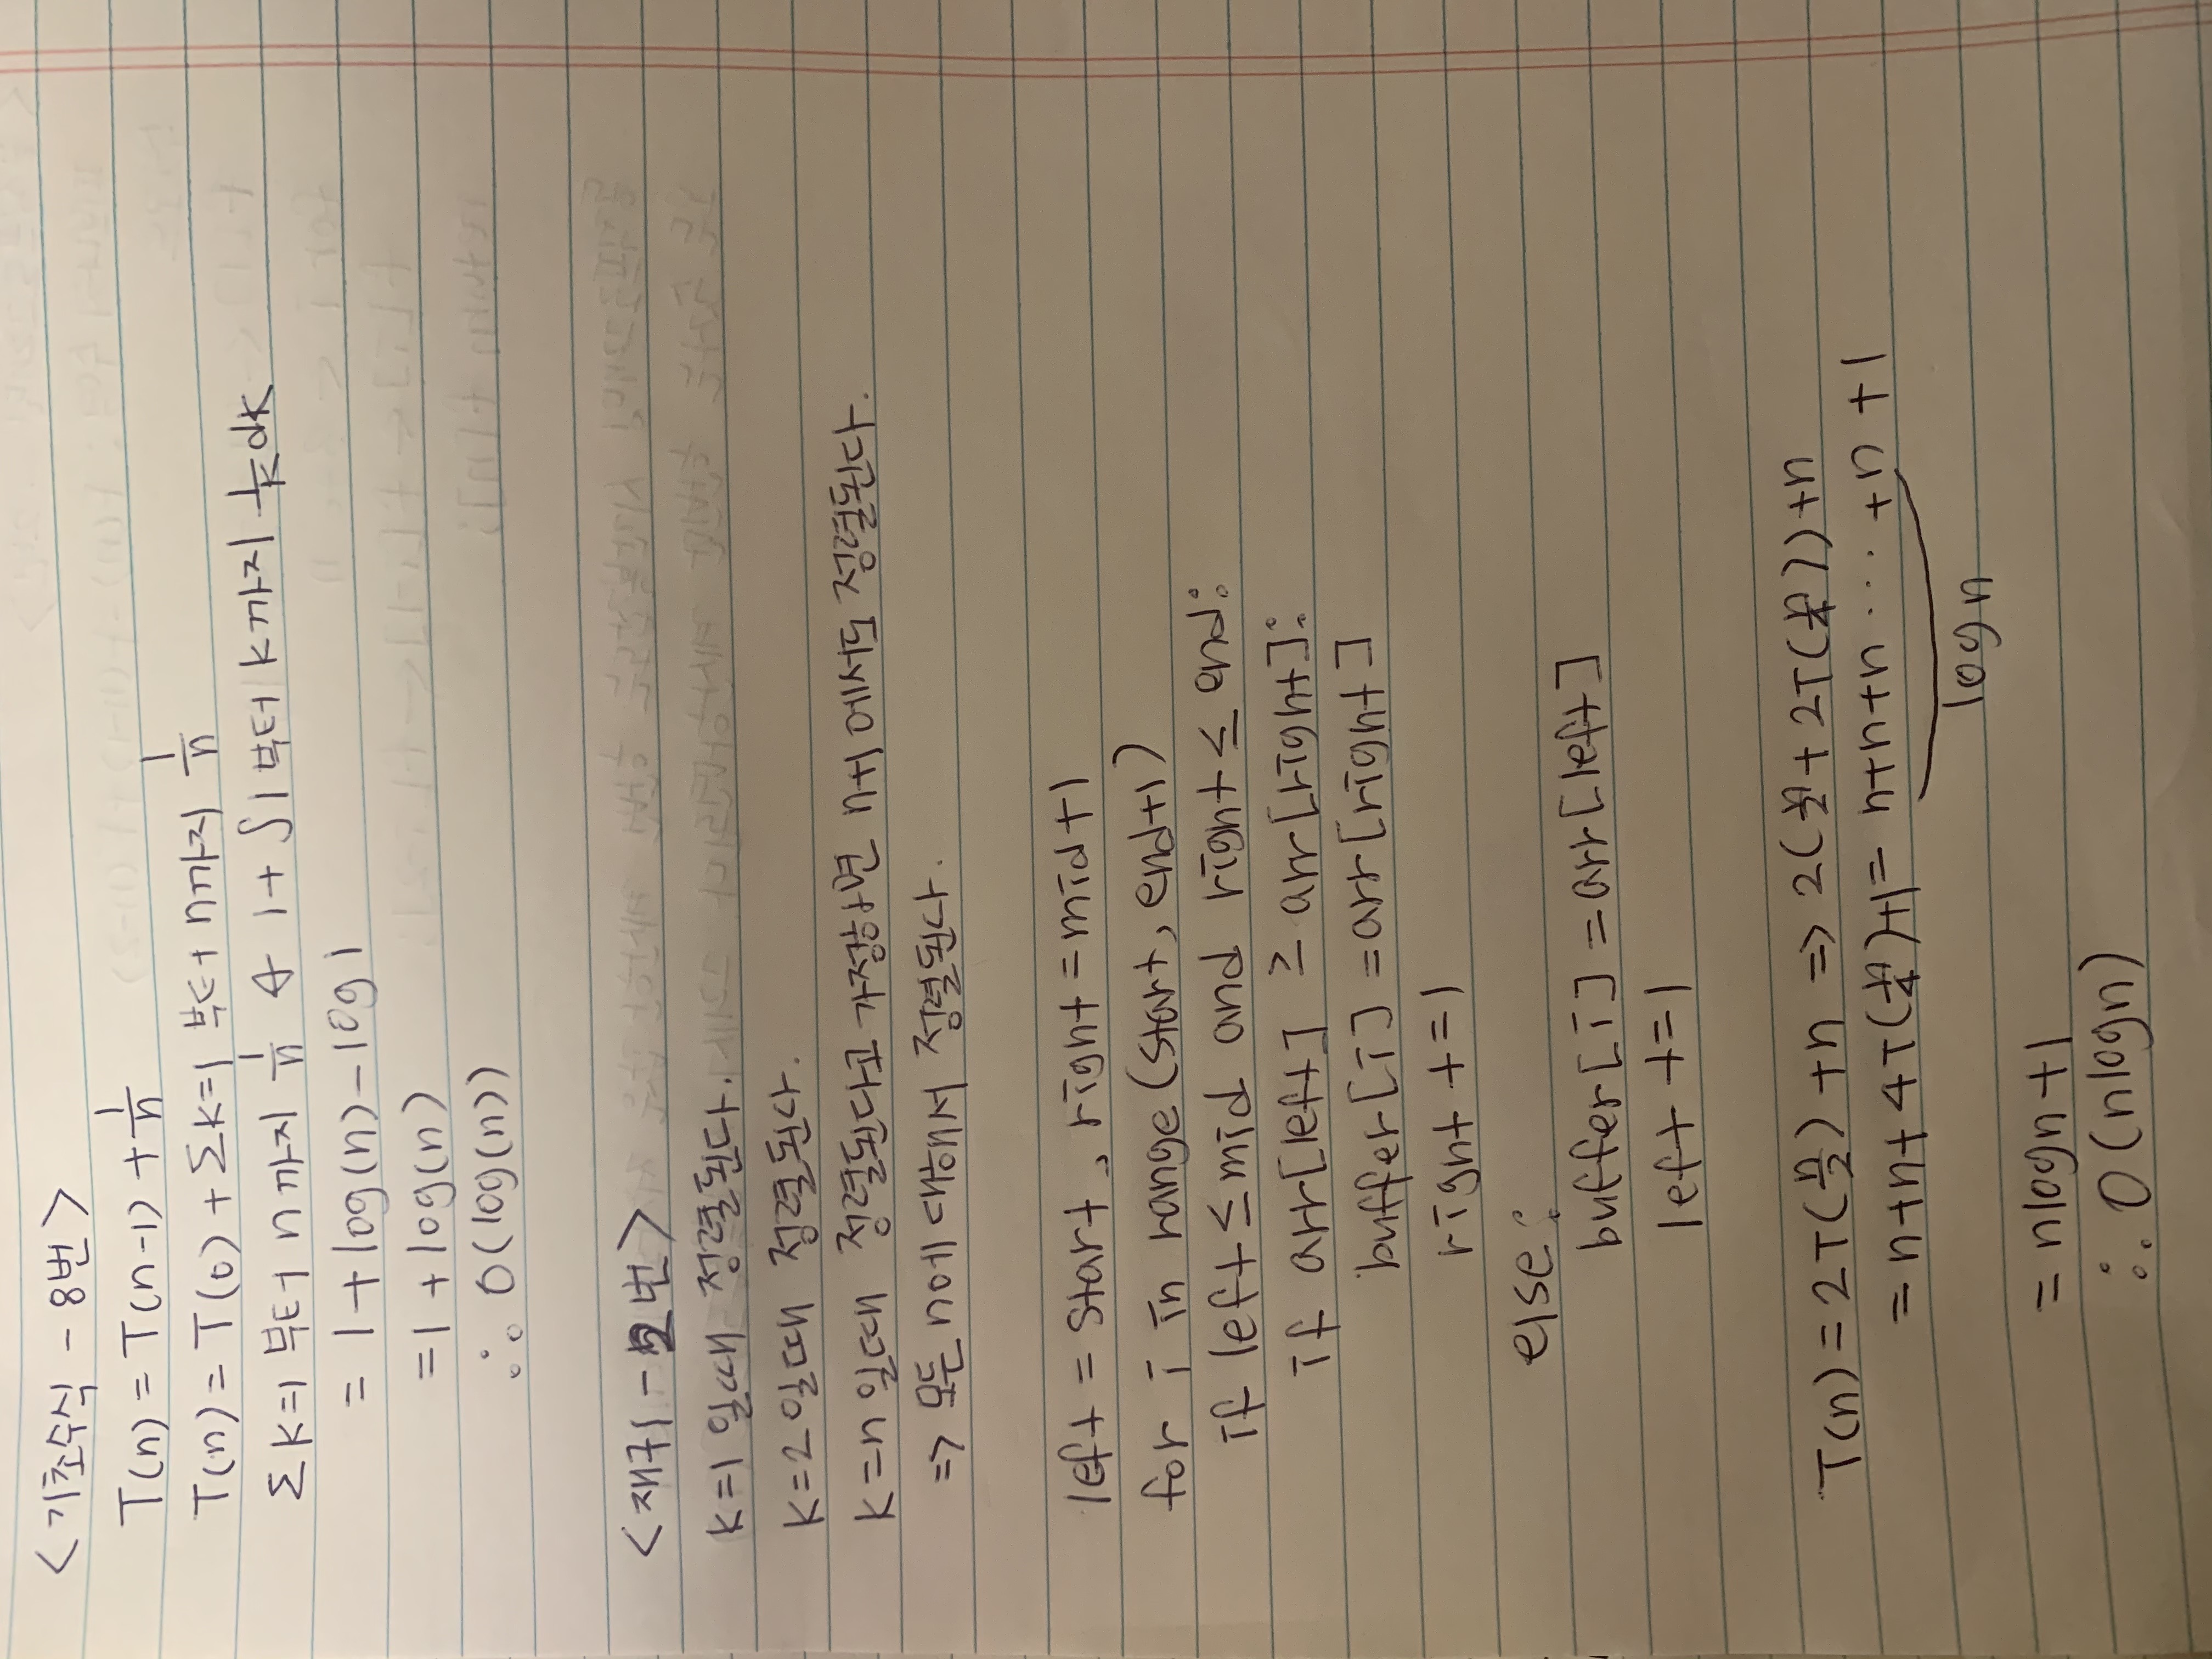 <기초수식 - 8번>
T(n) = T(n-1) + 1/n
T(n) = T(0) + Σk=1 부터 n까지 1/n
Σk=1 부터 n까지 1/n 수 1+ ∫1부터 k까지 1/k dk
= 1+log(n)-log1
=1+log(n)
∴ O(log(n))
<재귀-2번>
k=1일때 정렬된다.
k=2일때 정렬된다.
k=n일때 정렬된다고 가정하면 n+1에서도 정렬된다.
=> 모든 n에 대해서 정렬된다.
left = start, right = mid+1
for i in range(start, end+1)
if left ≤ mid and right ≤ end:
if arr[left] ≥ arr[right]:
buffer[i] = arr[right]
right +=1
else:
buffer[i] = arr[left]
left +=1
T(n) = 2T(n/2) + n => 2(n/2 + 2T(n/4)) + n
= n+n+4T(n/4)+1 = n+n+n ... +n +1
logn
= nlogn+1
∴ O(nlogn)